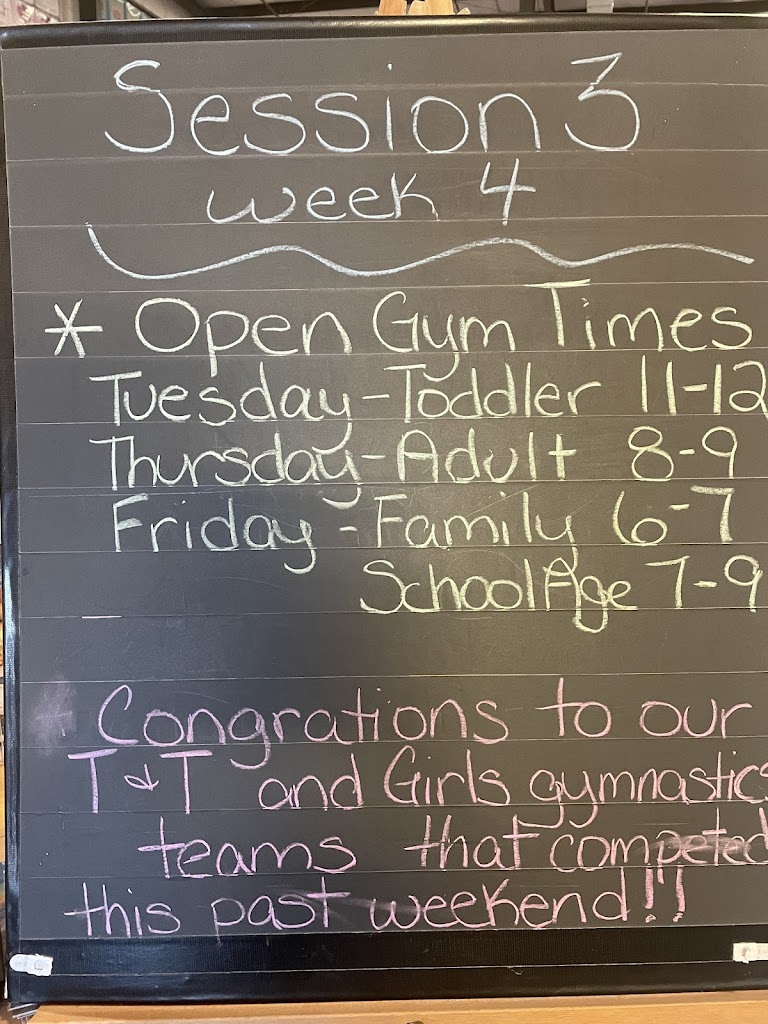 Session 3
week 4
* Open Gym Times
Tuesday - Toddler 11-12
Thursday - Adult 8-9
Friday - Family 6-7
School Age 7-9
Congrations to our
T & T and Girls gymnastics
teams that competed
this past weekend!!